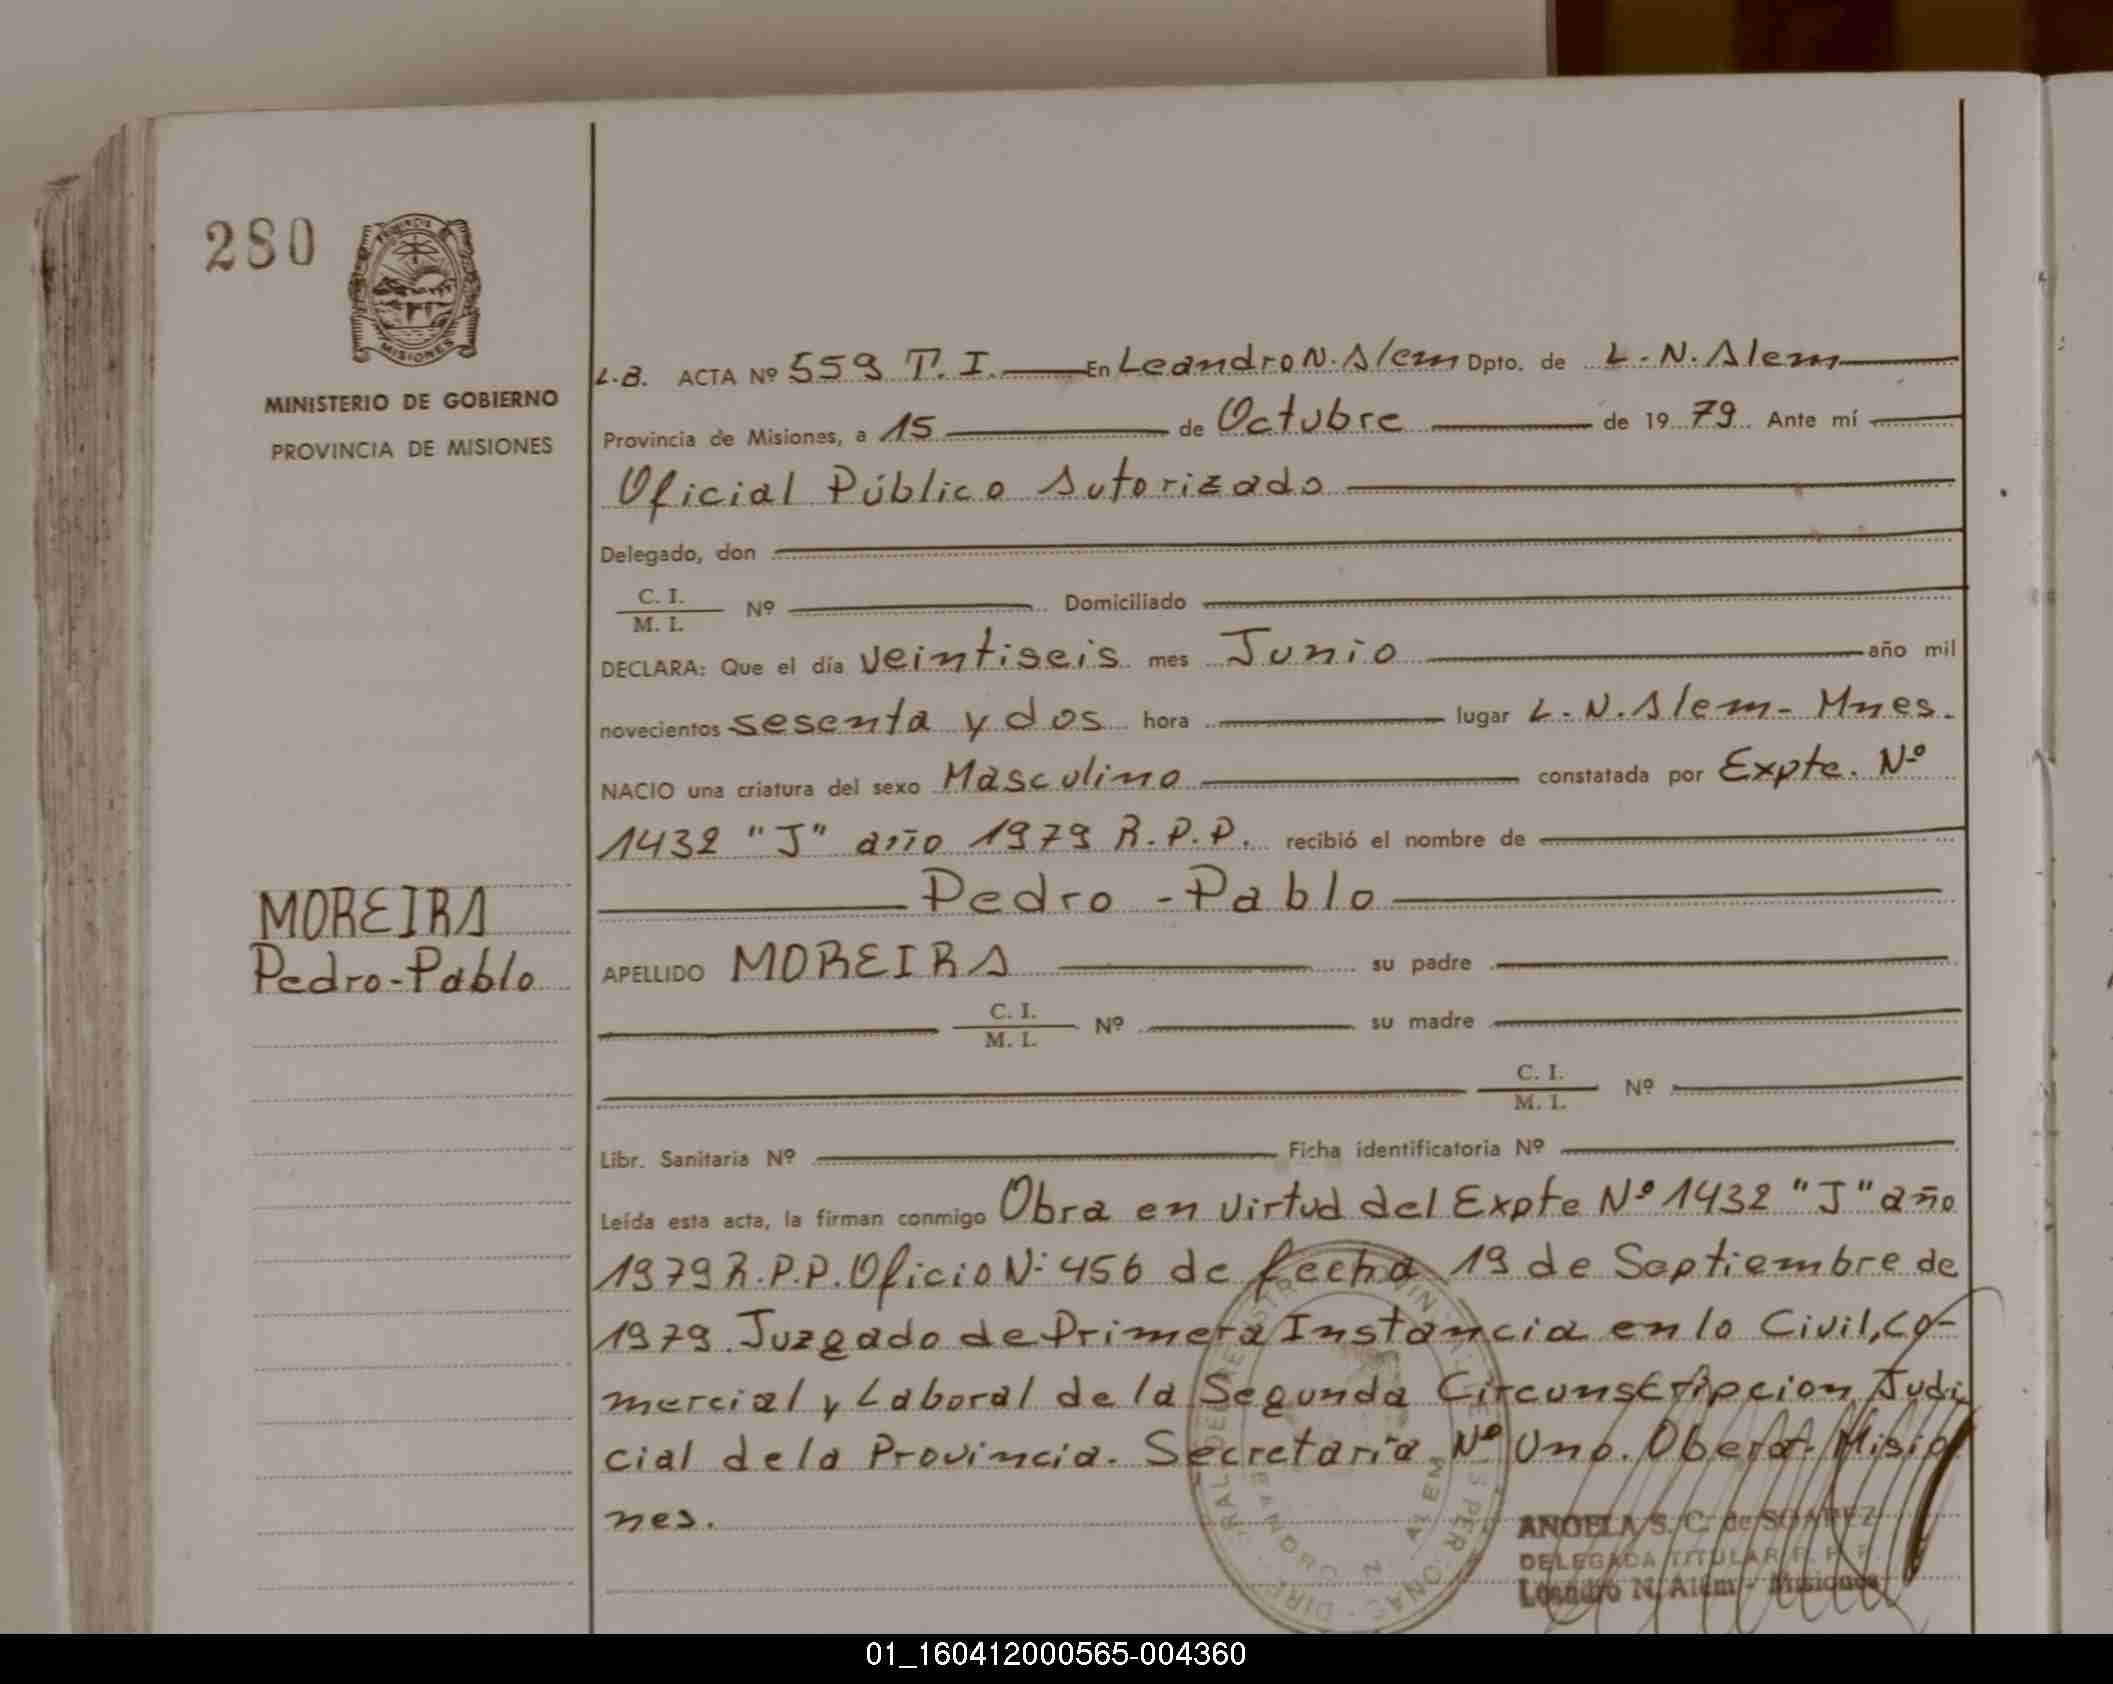 280
PROVINCIA
MISIONES
MINISTERIO DE GOBIERNO
PROVINCIA DE MISIONES
MOREIRA
Pedro-Pablo
L.B. ACTA Nº 559 T. I. En Leandro N. Alem Dpto. de L. N. Alem
Provincia de Misiones, a 15 de Octubre de 1979. Ante mí
Oficial Público Autorizado
Delegado, don
C. I.
M. I. Nº Domiciliado
DECLARA: Que el día veintiseis mes Junio año mil
novecientos sesenta y dos hora lugar L. N. Alem - Mnes.
NACIO una criatura del sexo Masculino constatada por Expte. Nº
1432 "J" año 1979 R.P.P. recibió el nombre de
Pedro - Pablo
APELLIDO MOREIRA su padre
C. I.
M. I. Nº su madre
C. I.
M. I. Nº
Libr. Sanitaria Nº Ficha identificatoria Nº
Leída esta acta, la firman conmigo Obra en virtud del Expte Nº 1432 "J" año
1979 R.P.P. Oficio Nº 456 de fecha 19 de Septiembre de
1979. Juzgado de Primera Instancia en lo Civil, Co-
mercial y Laboral de la Segunda Circunscripcion Judi
cial de la Provincia. Secretaría Nº Uno. Oberá - Misio
nes.
LEANDRO N. ALEM
ANGELA S. C. de SOAREZ
DELEGADA TITULAR R. P. P.
Leandro N. Alem - Misiones
01_160412000565-004360